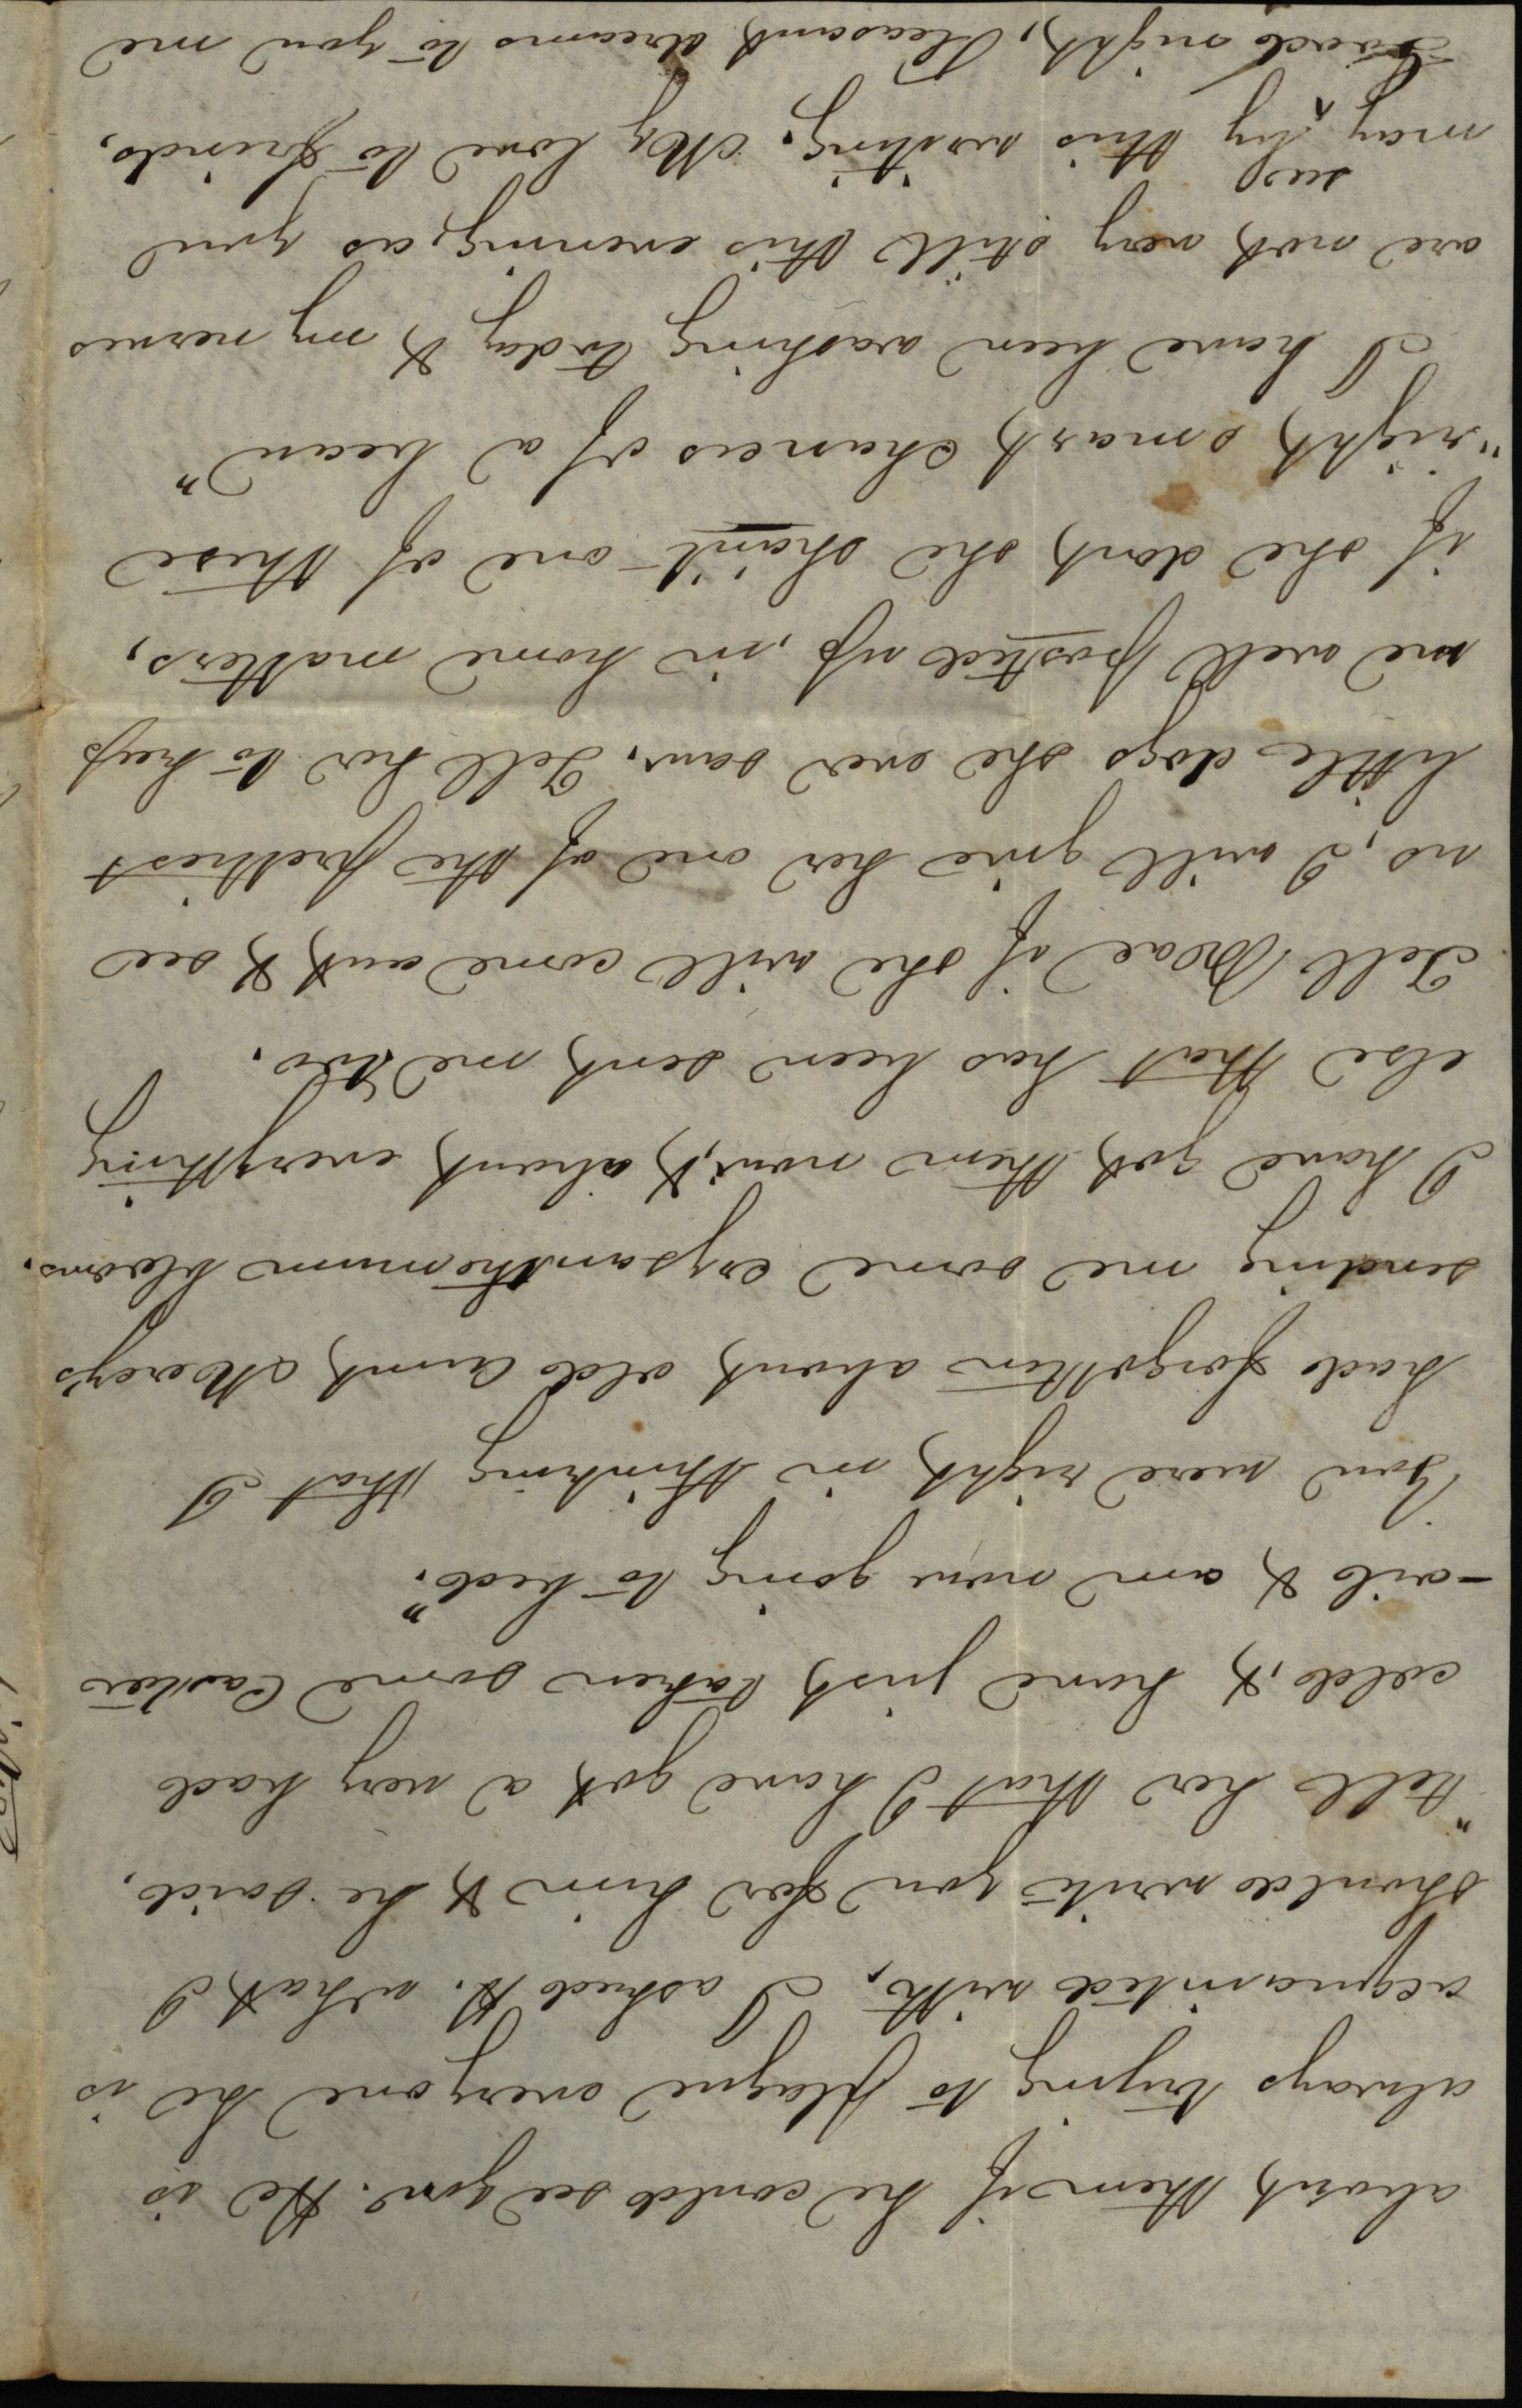 about them if he could see you. He is
always trying to plague every one he is
acquainted with. I asked H. what I
should write you for him & he said,
"tell her that I have got a very bad
cold, & have just taken some Castor
-oil & am now going to bed."
You were right in thinking that I
had forgotten about old Aunt Mercy's
sending me some crysanthemum blooms.
I have got them now, & about everything
else that has been sent me too.
Tell Moae if she will come out & see
us, I will give her one of the prettiest
little dogs she ever saw. Tell her to keep
me well posted up, in home matters,
if she dont she shan't one of these
"right smart chances of a beau"
I have been washing today & my nerves
are not very still this evening, as you
may see by this writing. My love to friends,
Good night, Pleasant dreams to you me